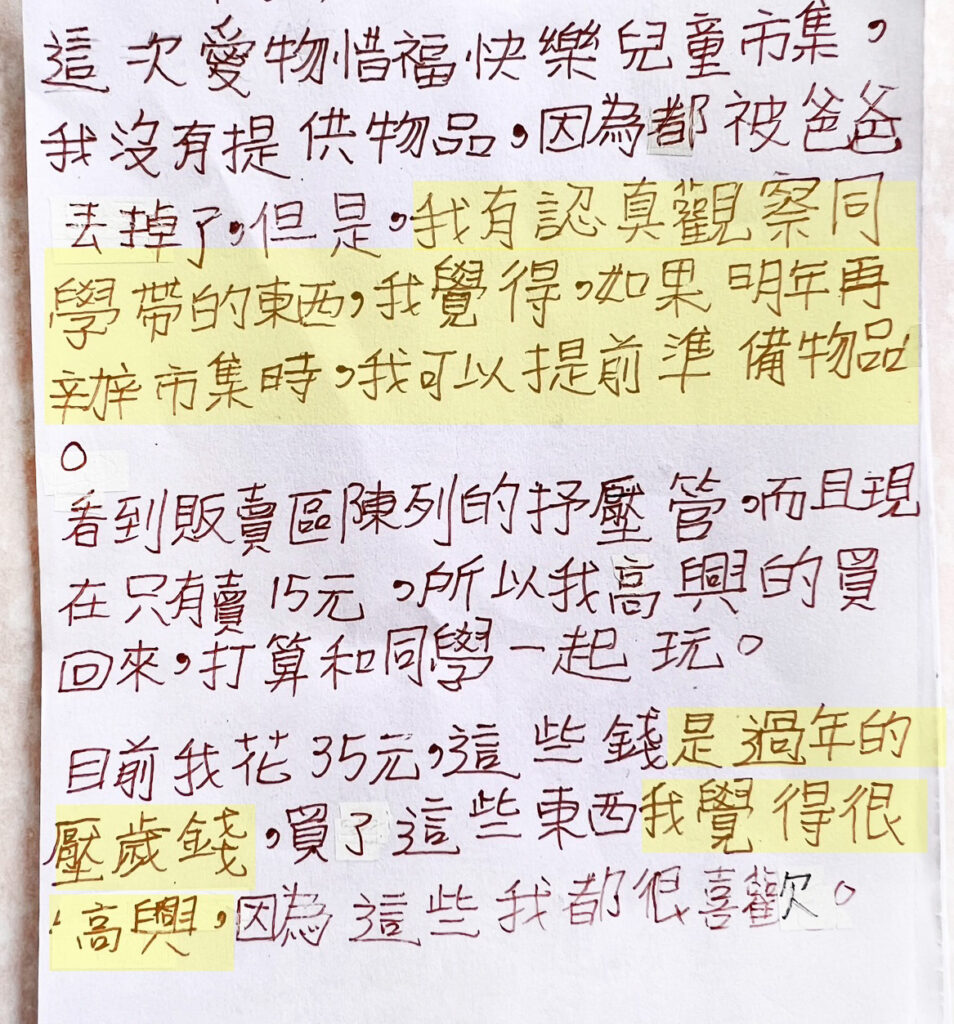 這次愛物惜福快樂兒童市集，
我沒有提供物品，因為都被爸爸
丟掉了，但是，我有認真觀察同
學帶的東西，我覺得，如果明年再
辦市集時，我可以提前準備物品
。
看到販賣區陳列的抒壓管，而且現
在只有賣15元，所以我高興的買
回來，打算和同學一起玩。
目前我花35元，這些錢是過年的
壓歲錢，買了這些東西我覺得很
高興，因為這些我都很喜歡。